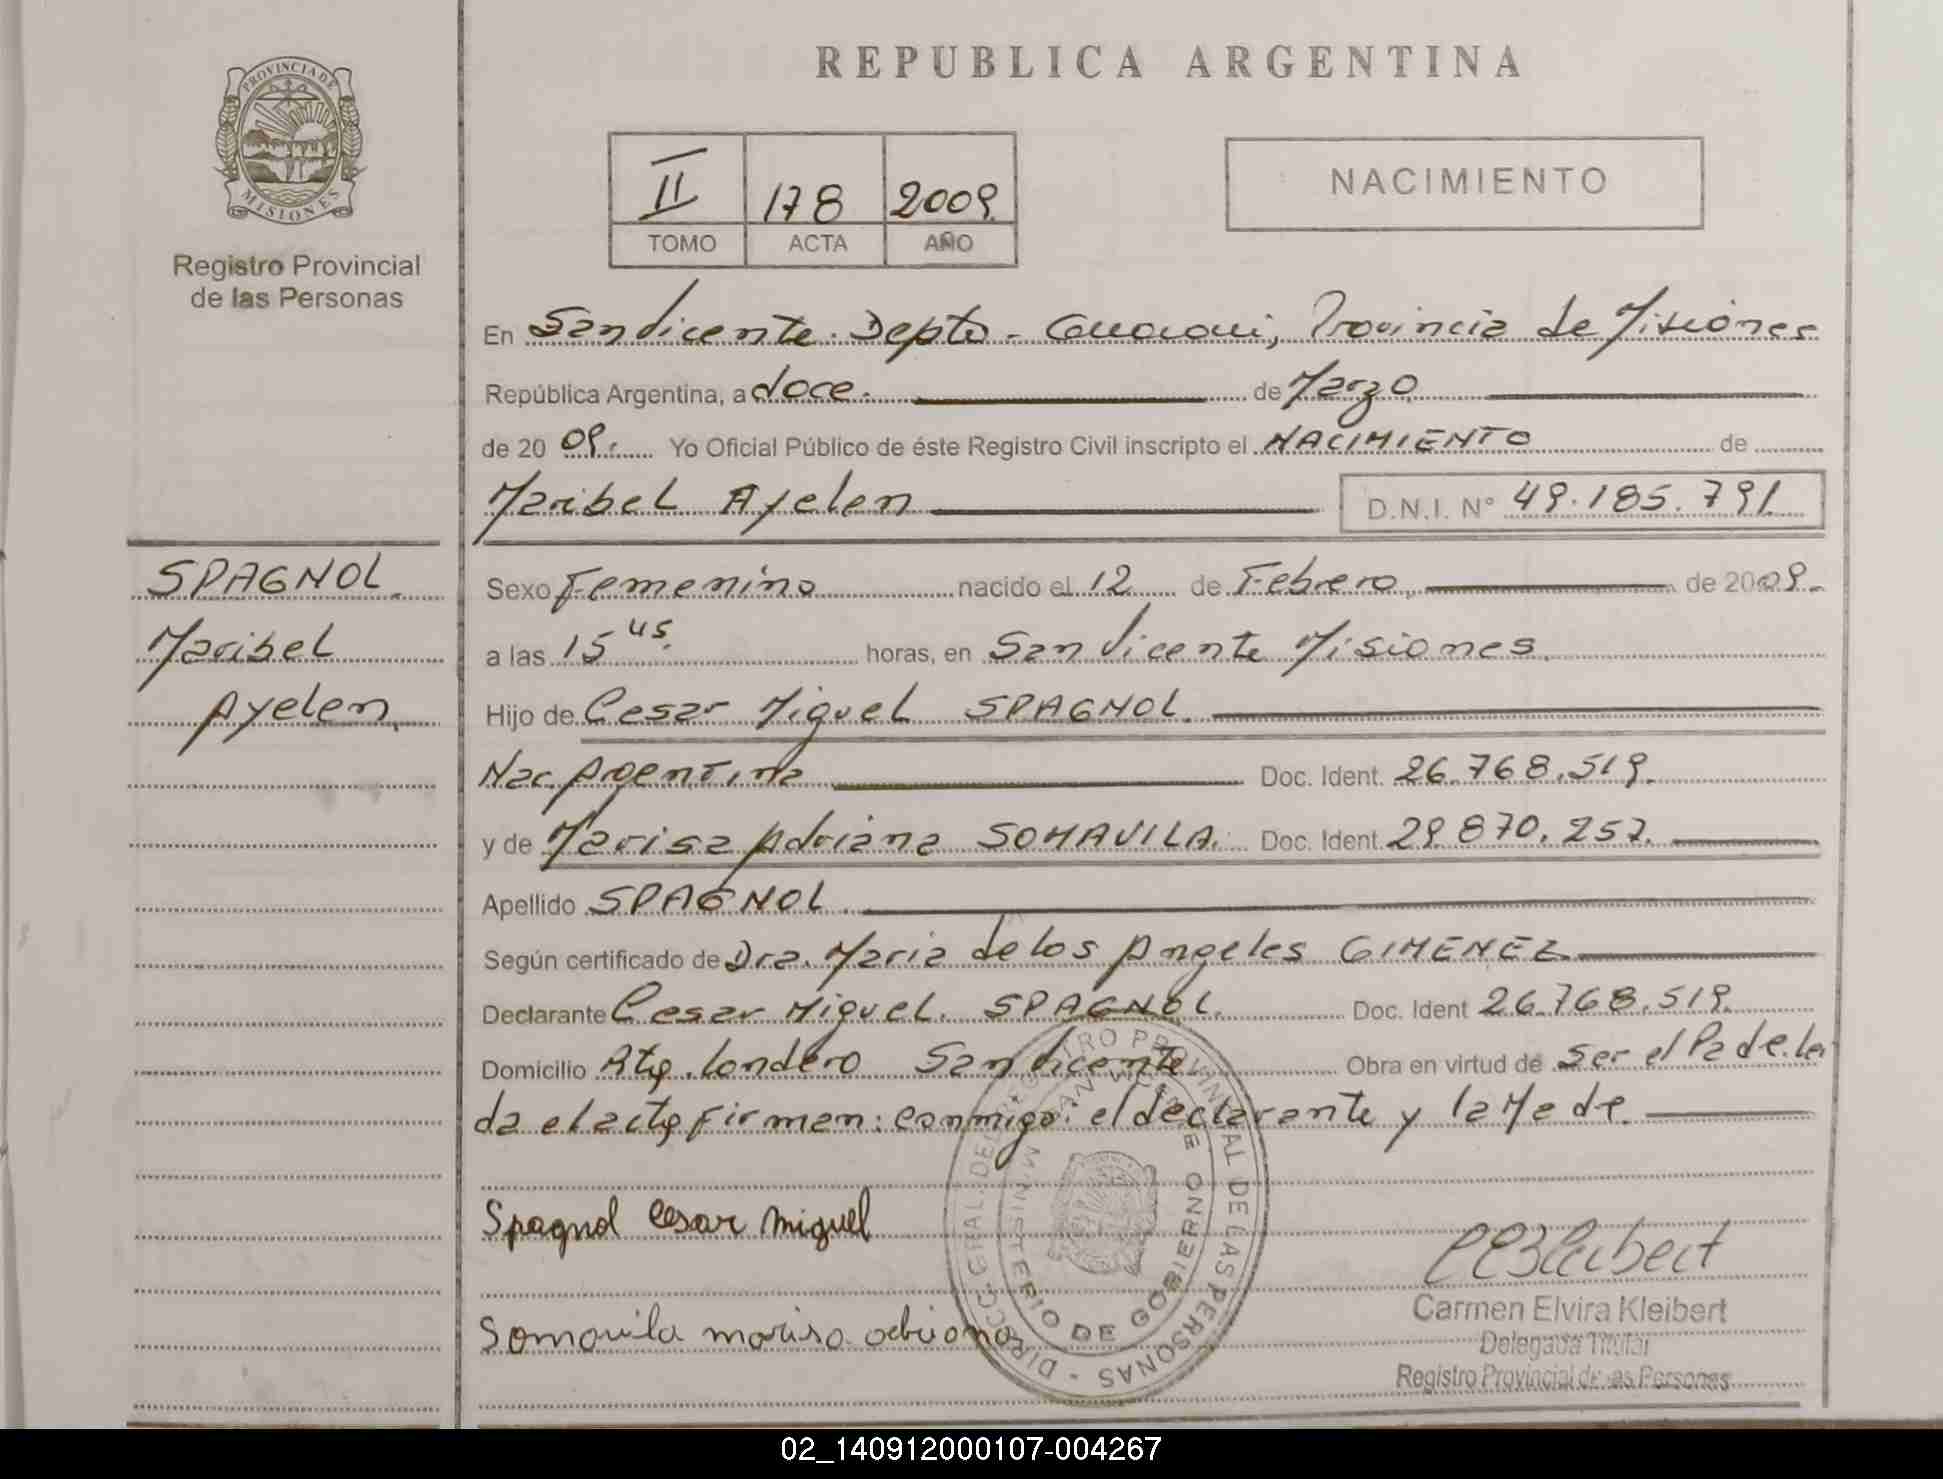 REPUBLICA ARGENTINA
PROVINCIA DE
MISIONES
Registro Provincial
de las Personas
II 178 2009
TOMO ACTA AÑO
NACIMIENTO
En San Vicente. Depto. Guarani, Provincia de Misiones
República Argentina, a doce. de Marzo
de 20 09. Yo Oficial Público de éste Registro Civil inscripto el NACIMIENTO de
Maribel Ayelen D.N.I. N° 49.185.791
SPAGNOL.
Maribel
Ayelen.
Sexo Femenino nacido el 12 de Febrero, de 2009.
a las 15 45. horas, en San Vicente Misiones.
Hijo de Cesar Miguel SPAGNOL.
Nac. Argentina Doc. Ident. 26.768.519.
y de Marisa Adriana SOMAVILA. Doc. Ident. 29.870.257.
Apellido SPAGNOL.
Según certificado de Dra. Maria de los Angeles GIMENEZ.
Declarante Cesar Miguel. SPAGNOL. Doc. Ident 26.768.519.
Domicilio Londero San Vicente Obra en virtud de Ser el Padre. Lei
da el acta firman: conmigo: el declarante y la Madre.
Spagnol Cesar Miguel
Somavila marisa adriana
DIRECC. GRAL. DEL REGISTRO PROVINCIAL DE LAS PERSONAS -
MINISTERIO DE GOBIERNO
SAN VICENTE
Carmen Elvira Kleibert
Delegada Titular
Registro Provincial de las Personas
02_140912000107-004267